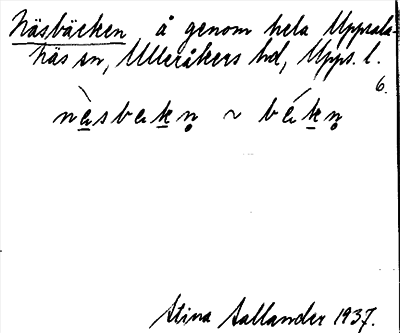 Näsbäcken å genom hela Uppsala-
näs sn, Ulleråkers hd, Upps. l.
6.
nèsbekn ~ békn
Stina Sallander 1937.